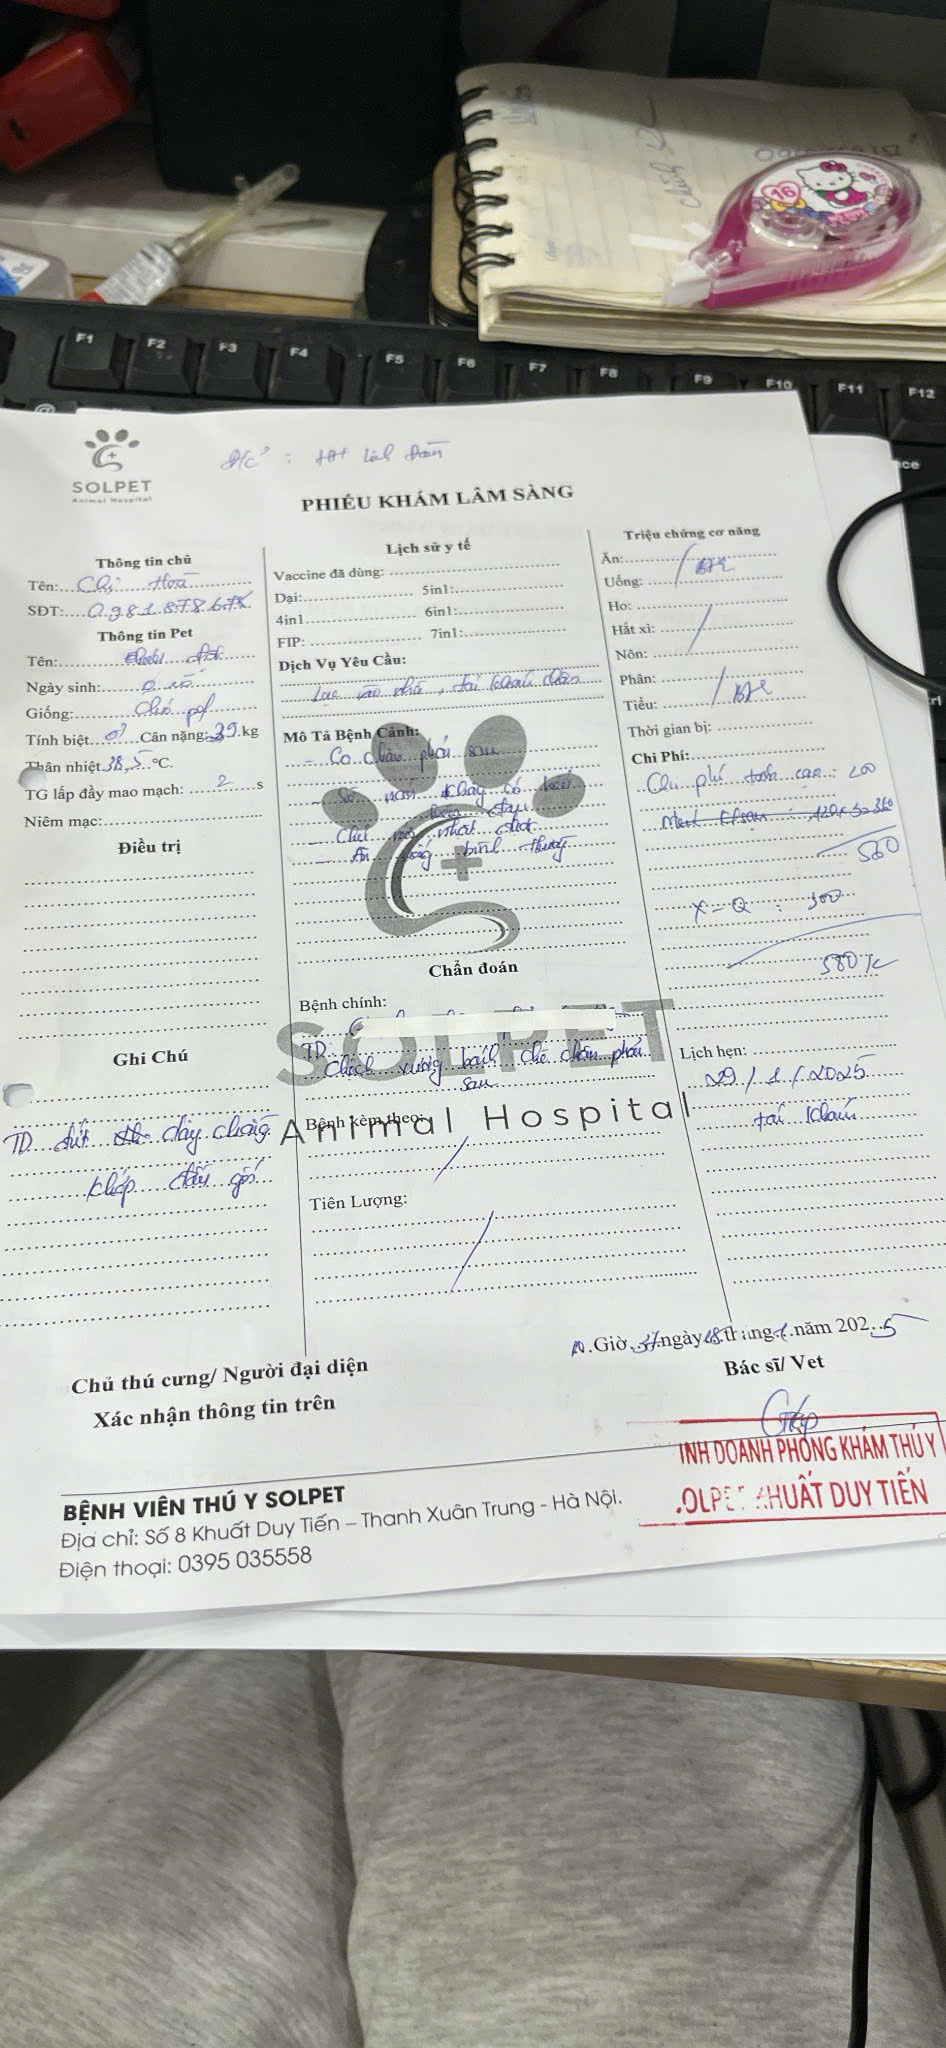 F1 F2 F3 F4 F5 F6 F7 F8 F9 F10 F11 F12
16
SOLPET
Animal Hospital
Đ/c : HH Linh Đàm
PHIẾU KHÁM LÂM SÀNG
Thông tin chủ
Tên: Chị Hoà
SĐT: 0981.878.67
Thông tin Pet
Tên:
Ngày sinh:
Giống: Chó
Tính biệt. Cân nặng: 3,9 kg
Thân nhiệt 38,5 °C.
TG lấp đầy mao mạch: 2 s
Niêm mạc:
Điều trị
Ghi Chú
TD đứt dây chằng
khớp đầu gối
Lịch sử y tế
Vaccine đã dùng:
Dại: 5in1:
4in1 6in1:
FIP: 7in1:
Dịch Vụ Yêu Cầu:
tái khám chân
Mô Tả Bệnh Cảnh:
- Co chân phải sau
- Sờ nắn không có
đau
-
- Ăn uống bình thường
Chẩn đoán
Bệnh chính:
TD
chệch xương bánh chè chân phải
sau
SOLPET
Animal Hospital
Bệnh kèm theo:
Tiên Lượng:
Triệu chứng cơ năng
Ăn:
Uống: BT
Ho:
Hắt xì:
Nôn:
Phân:
Tiểu: BT
Thời gian bị:
Chi Phí:
Chi phí 200
120 x 3 = 360
560
X-Q : 300
580 K
Lịch hẹn:
29/1/2025
tái khám
Giờ 37 ngày 18 tháng 1 năm 2025
Bác sĩ/ Vet
Chủ thú cưng/ Người đại diện
Xác nhận thông tin trên
INH DOANH PHÒNG KHÁM THÚ Y
OLPET KHUẤT DUY TIẾN
BỆNH VIỆN THÚ Y SOLPET
Địa chỉ: Số 8 Khuất Duy Tiến – Thanh Xuân Trung - Hà Nội.
Điện thoại: 0395 035558